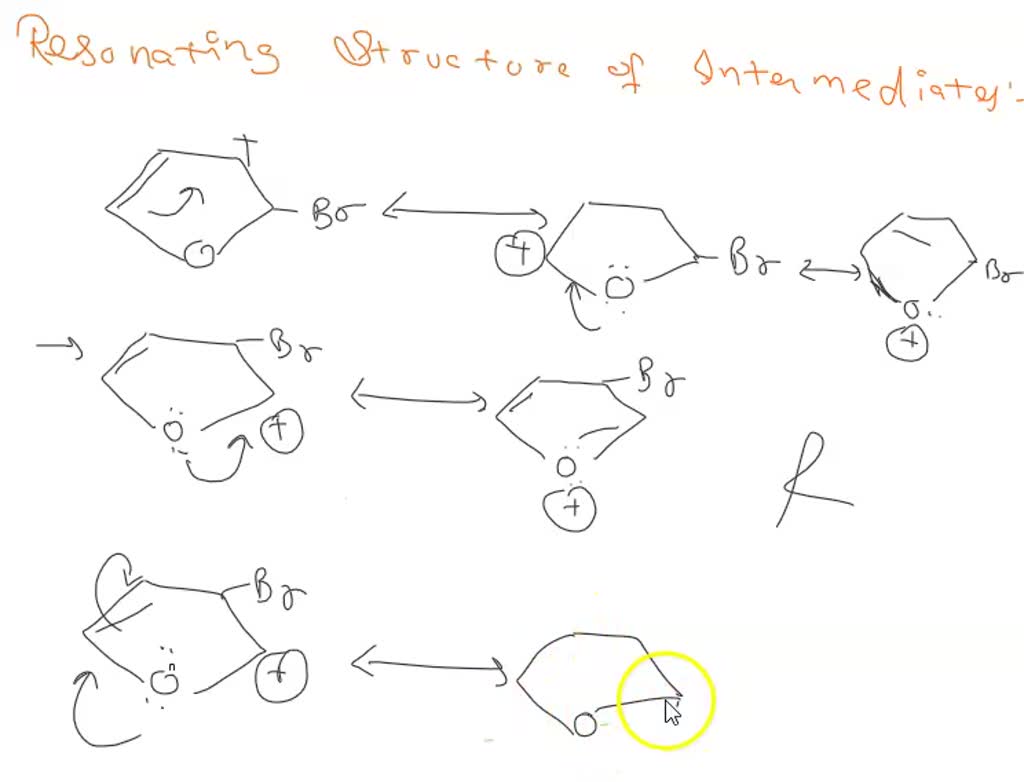 Resonating Structure of Intermediates:-
+
Br
O
+
Br
O
Br
O
+
Br
O
+
Br
O
+
R
Br
O
+
O